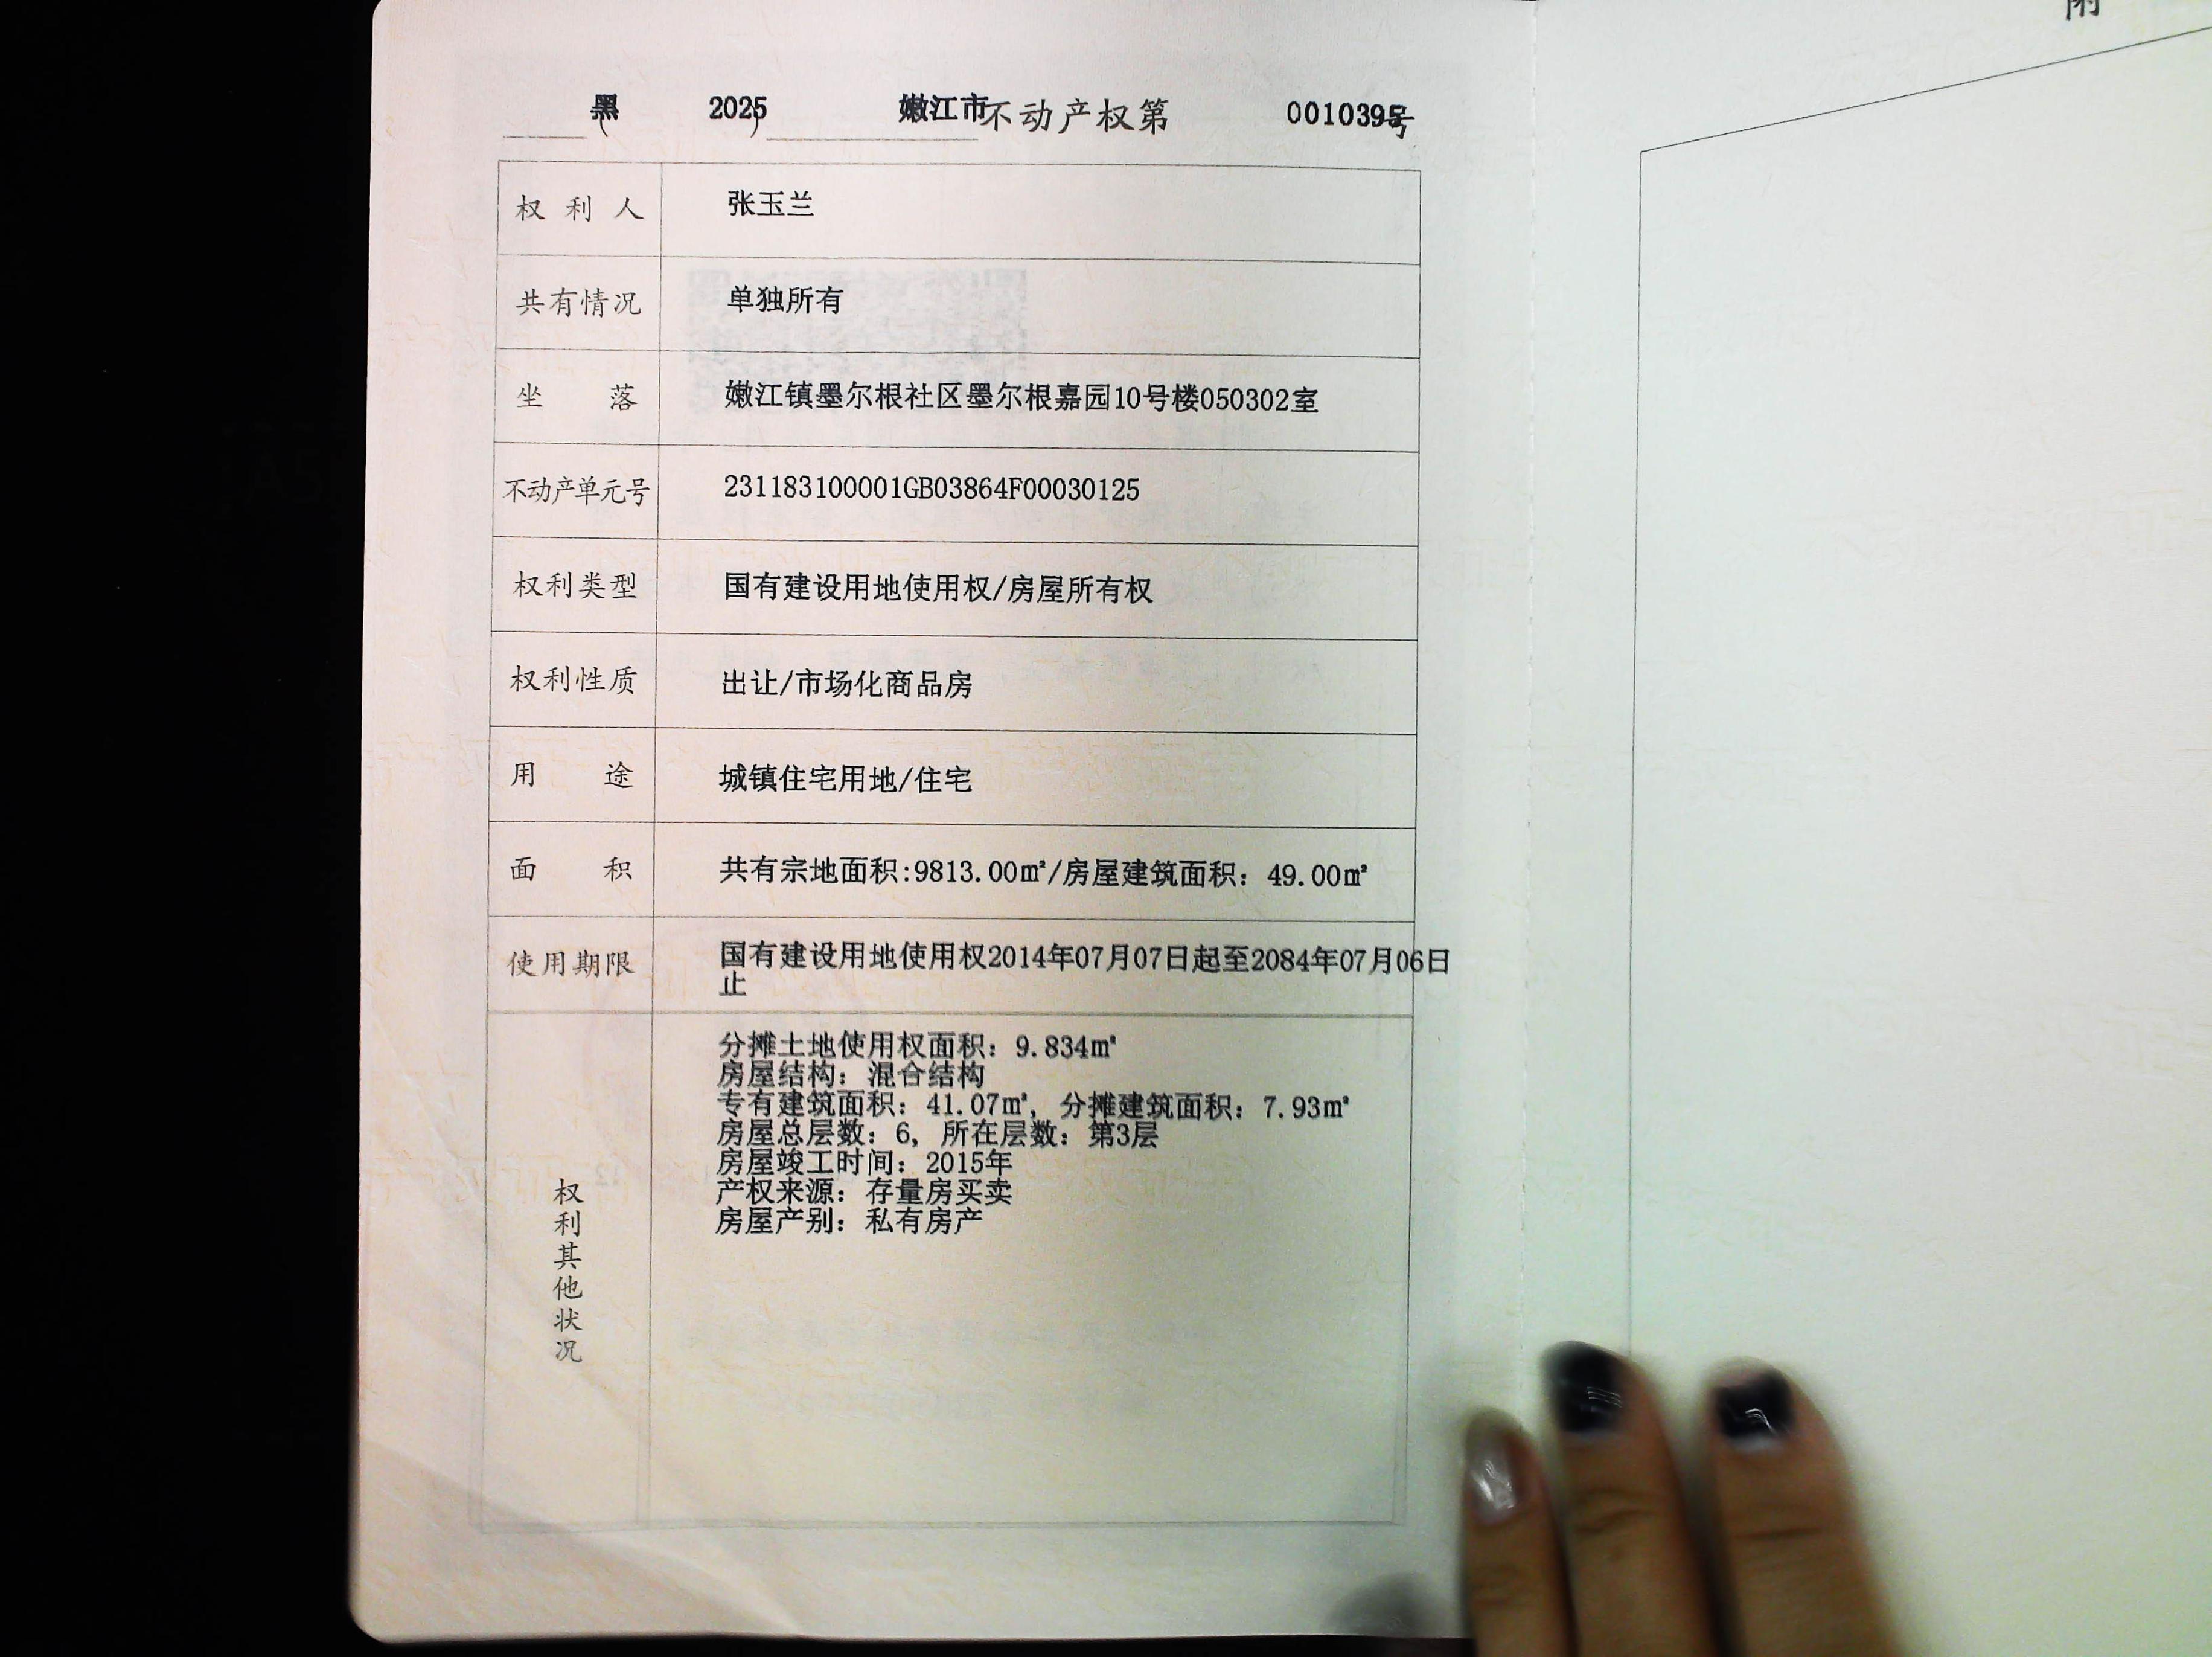 黑（2025）嫩江市不动产权第0010395号
权利人 张玉兰
共有情况 单独所有
坐落 嫩江镇墨尔根社区墨尔根嘉园10号楼050302室
不动产单元号 231183100001GB03864F00030125
权利类型 国有建设用地使用权/房屋所有权
权利性质 出让/市场化商品房
用途 城镇住宅用地/住宅
面积 共有宗地面积:9813.00㎡/房屋建筑面积：49.00㎡
使用期限 国有建设用地使用权2014年07月07日起至2084年07月06日
止
权利其他状况
分摊土地使用权面积：9.834㎡
房屋结构：混合结构
专有建筑面积：41.07㎡，分摊建筑面积：7.93㎡
房屋总层数：6，所在层数：第3层
房屋竣工时间：2015年
产权来源：存量房买卖
房屋产别：私有房产
附